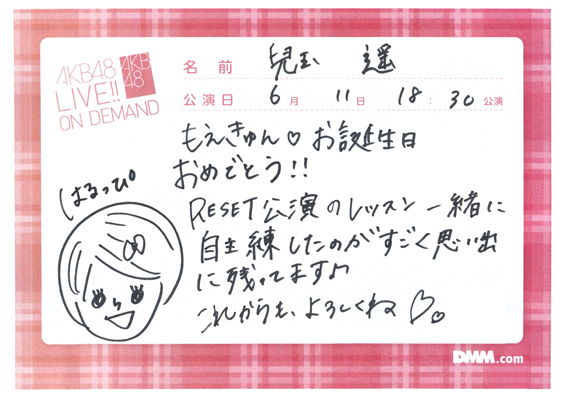 AKB48
LIVE!!
ON DEMAND
AKB
48
名前 兒玉 遥
公演日 6月 11日 18:30公演
もえきゅん♡お誕生日
おめでとう!!
はるっぴ
RESET公演のレッスン一緒に
自主練したのがすごく思い出
に残ってます♪
これからも、よろしくね♡。
DMM.com